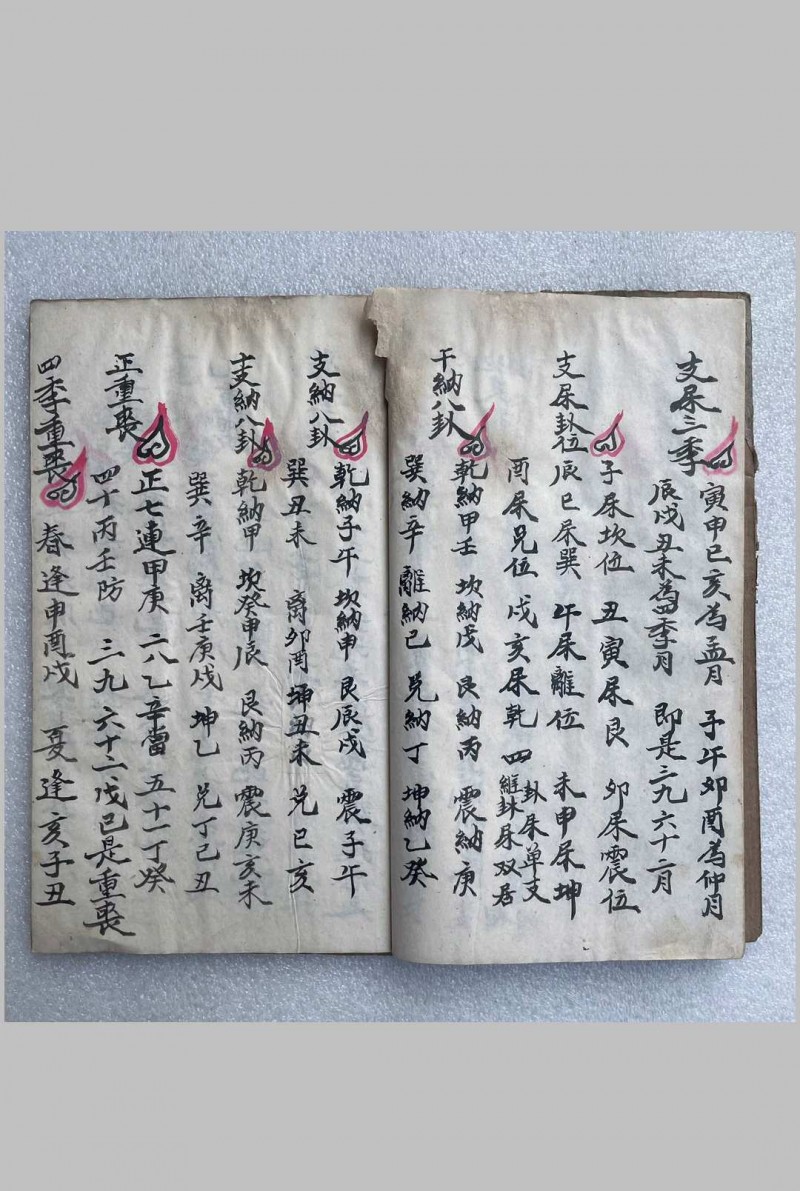 支屎三季
寅申巳亥為孟月 子午卯酉為仲月
辰戌丑未為四季月 即是三九六十二月
支屎卦位
子屎坎位 丑寅屎艮 卯屎震位
辰巳屎巽 午屎離位 未申屎坤
酉屎兑位 戌亥屎乾 四卦屎单支
維卦屎双居
干納八卦
乾納甲壬 坎納戊 艮納丙 震納庚
巽納辛 離納己 兑納丁 坤納乙癸
支納八卦
乾納子午 坎納申 艮辰戌 震子午
巽丑未 离卯酉 坤丑未 兑巳亥
干支納八卦
乾納甲 坎癸申辰 艮納丙 震庚亥未
巽辛 离壬庚戌 坤乙 兑丁巳丑
正重喪
正七連甲庚 二八乙辛當 五十一丁癸
四十丙壬防 三九六十二戊己是重喪
四季重喪
春逢申酉戌 夏逢亥子丑